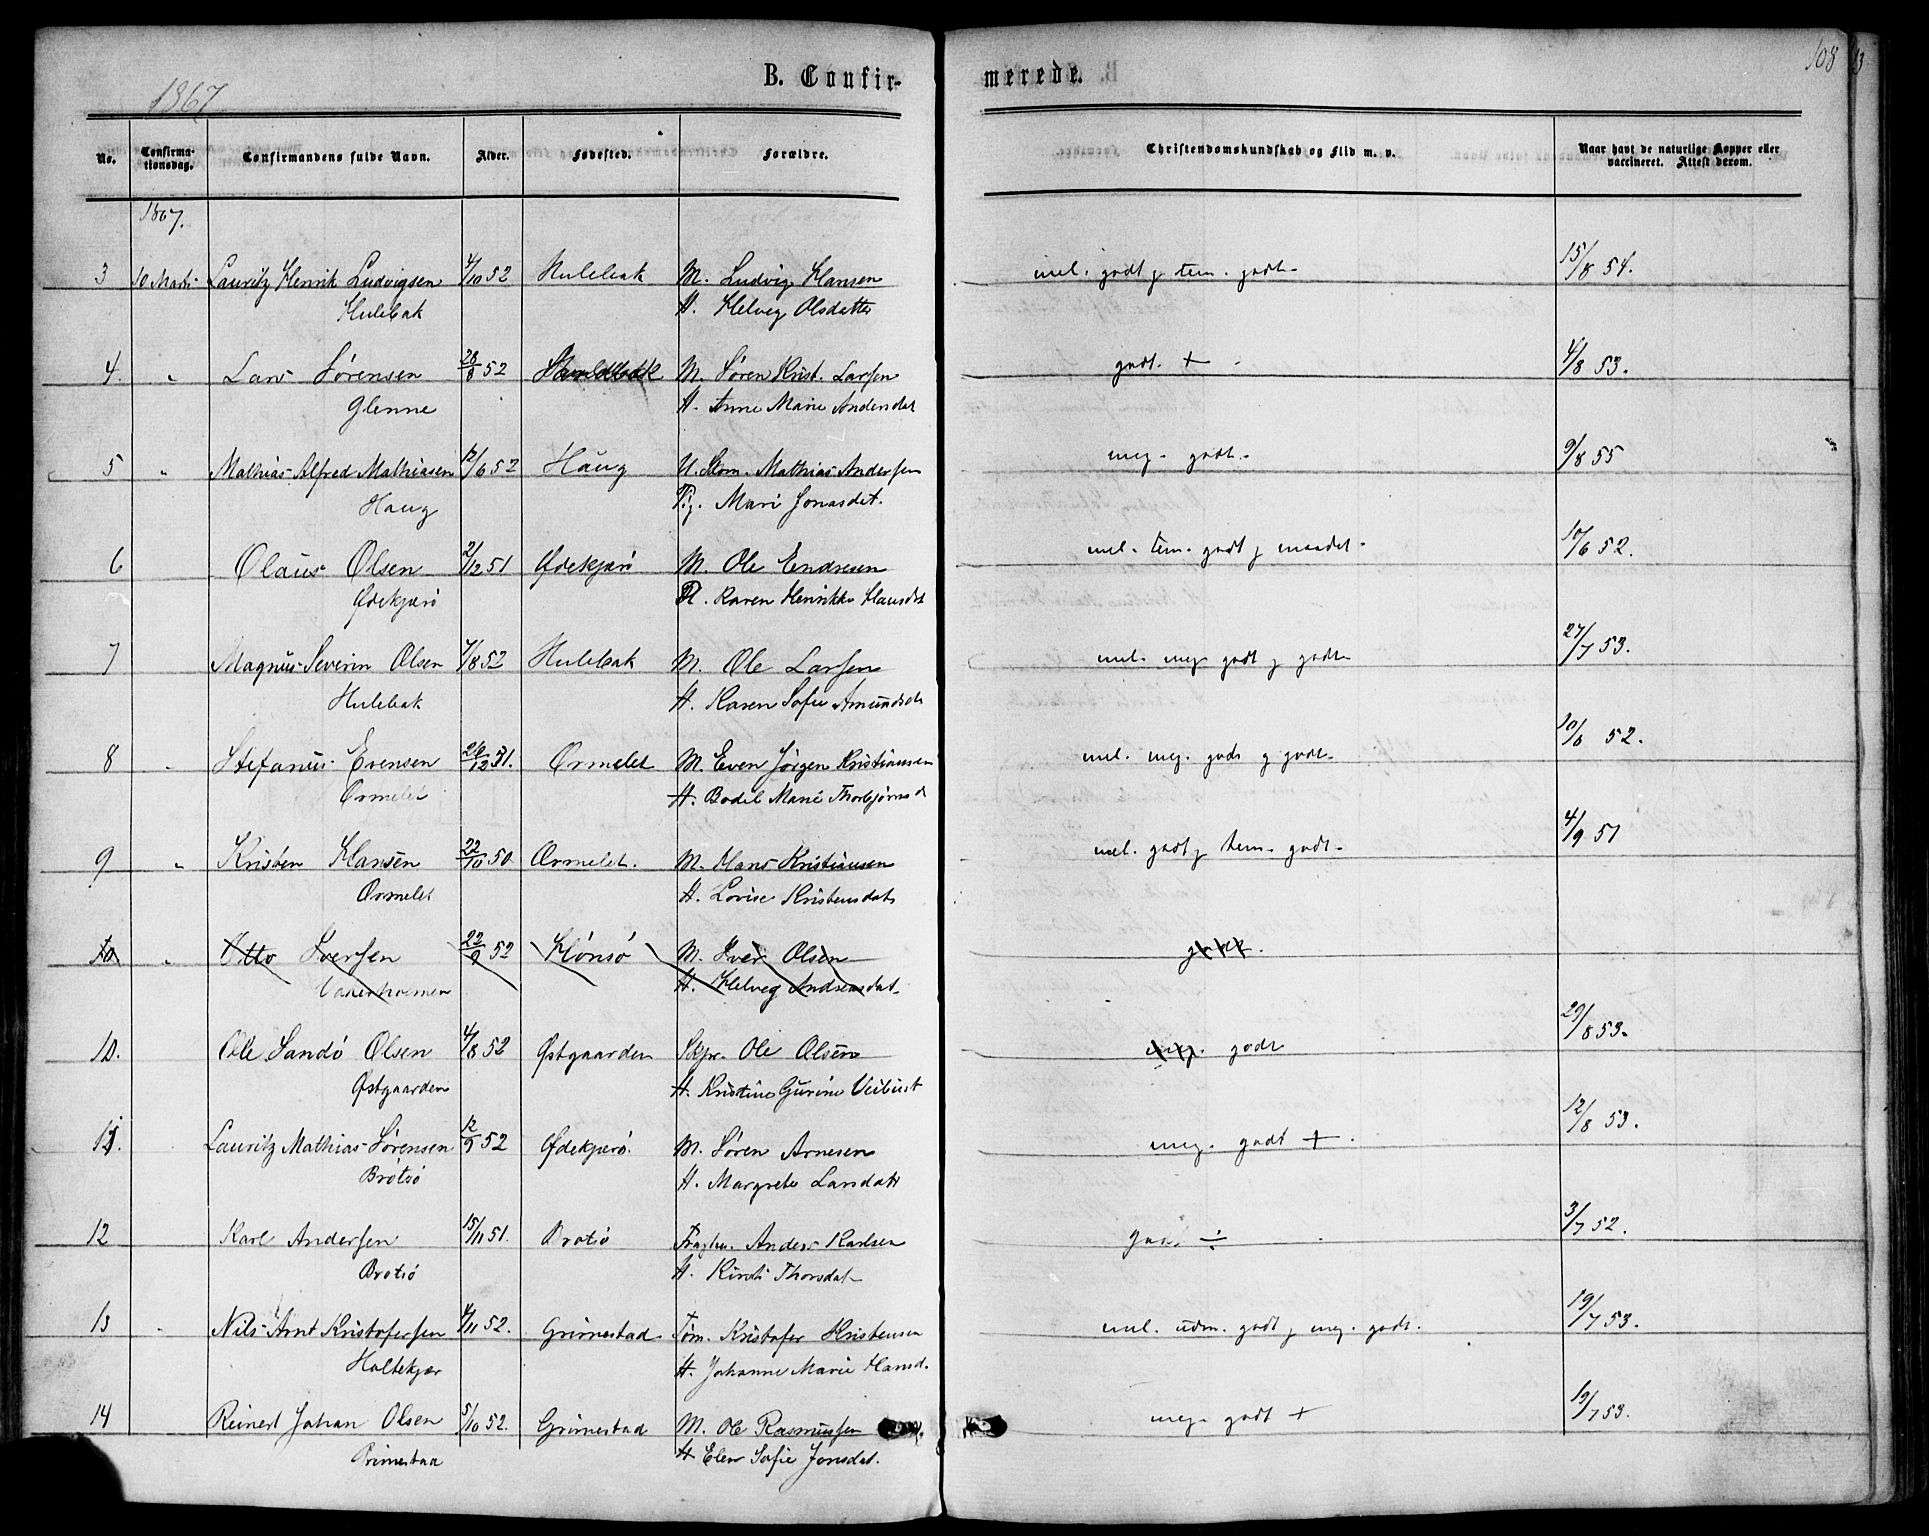 108
1867
B. Confirmerede.
No. Confirmationsdag. Confirmandens fulde Navn. Alder. Fødested. Forældre. Christendomskundskab og Flid m. v. Naar havt de naturlige Kopper eller vaccineret. Attest derom.
1867.
3 10 Marts Lauritz Henrik Ludvigsen 4/10 52 Hulebak M. Ludvig Hansen mel. godt g tem. godt 15/8 54.
Hulebak H. Helveg Olsdatter
4. " Lars Sørensen 28/8 52 M. Søren Krist. Larsen godt + 4/8 53.
Glenne H. Anne Marie Andersdat
5 " Mathias Alfred Mathiasen 12/6 52 Haug U. Mathias Andersen meg. godt. 9/8 55
Haug Pig. Mari Jonasdet.
6 Olaus Olsen 2/12 51 Ødekjærø M. Ole Endresen mel. tem. godt g maadel. 10/6 52.
Ødekjærø H. Karen Henrikke Hansdat
7 Magnus Severin Olsen 7/8 52 Hulebak M. Ole Larsen mel. meg godt g godt 27/7 53.
Hulebak H. Karen Sofie Amundsdt
8 " Stefanus Evensen 26/12 51. Ormelet M. Even Jörgen Kristiansen mel. meg. godt g godt. 10/8 52.
Ormelet H. Bodil Marie Thorbjørnsd
9 " Kristen Hansen 22/10 50. Ormelet. M. Hans Kristiansen mel. godt g tem. godt 4/9 51
Ormelet H. Lovise Kristensdat
10 " Otto Iversen 22/9 52 M. Iver Olsen godt.
H. Helveg Andreasdat
10. Ole Sandö Olsen 4/8 52 Østgaarden Skpr. Ole Olsen meg. godt 29/8 53.
Østgaarden H. Kristine Gurine
11. Lauritz Mathias Sørensen 12/9 52 Ødekjærø. M. Søren Arnesen meg. godt + 12/8 53.
Brötsö H. Margrete Larsdatt
12 Karl Andersen 15/11 51. Brotsö Anders Karlsen godt ÷ 3/7 52.
Brotsö H. Kirsti Thorsdat
13 Nils Arnt Kristofersen 4/11 52. Grimestad Töm. Kristofer Kristensen mel. udm. godt g meg. godt. 19/7 53.
Holtekjær H. Johanne Marie Hansd.
14 Reinert Johan Olsen 5/10 52. Grimestad M. Ole Rasmussen meg. godt + 19/7 53.
Grimestad H Elen Sofie Jonsdat.